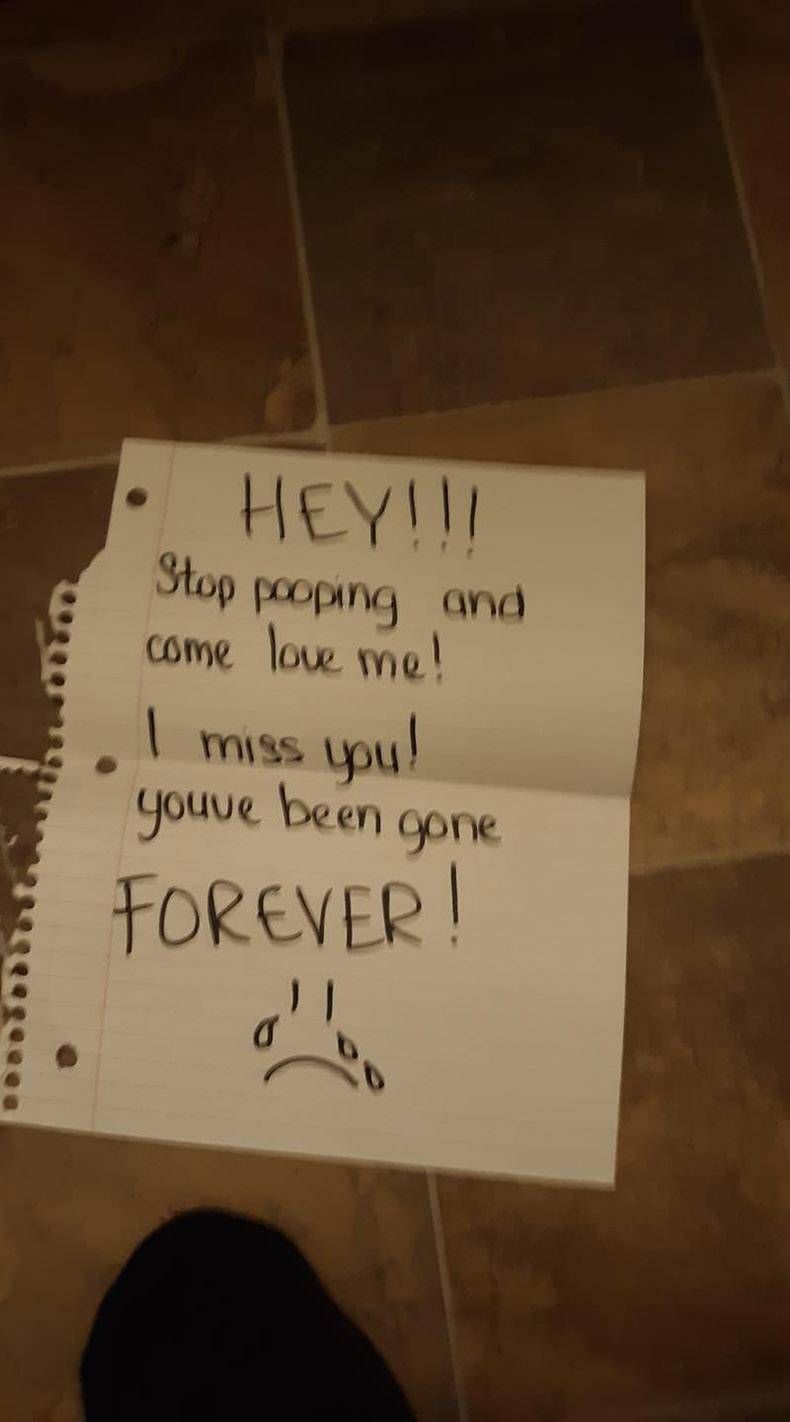 HEY!!!
Stop pooping and
come love me!
I miss you!
youve been gone
FOREVER!